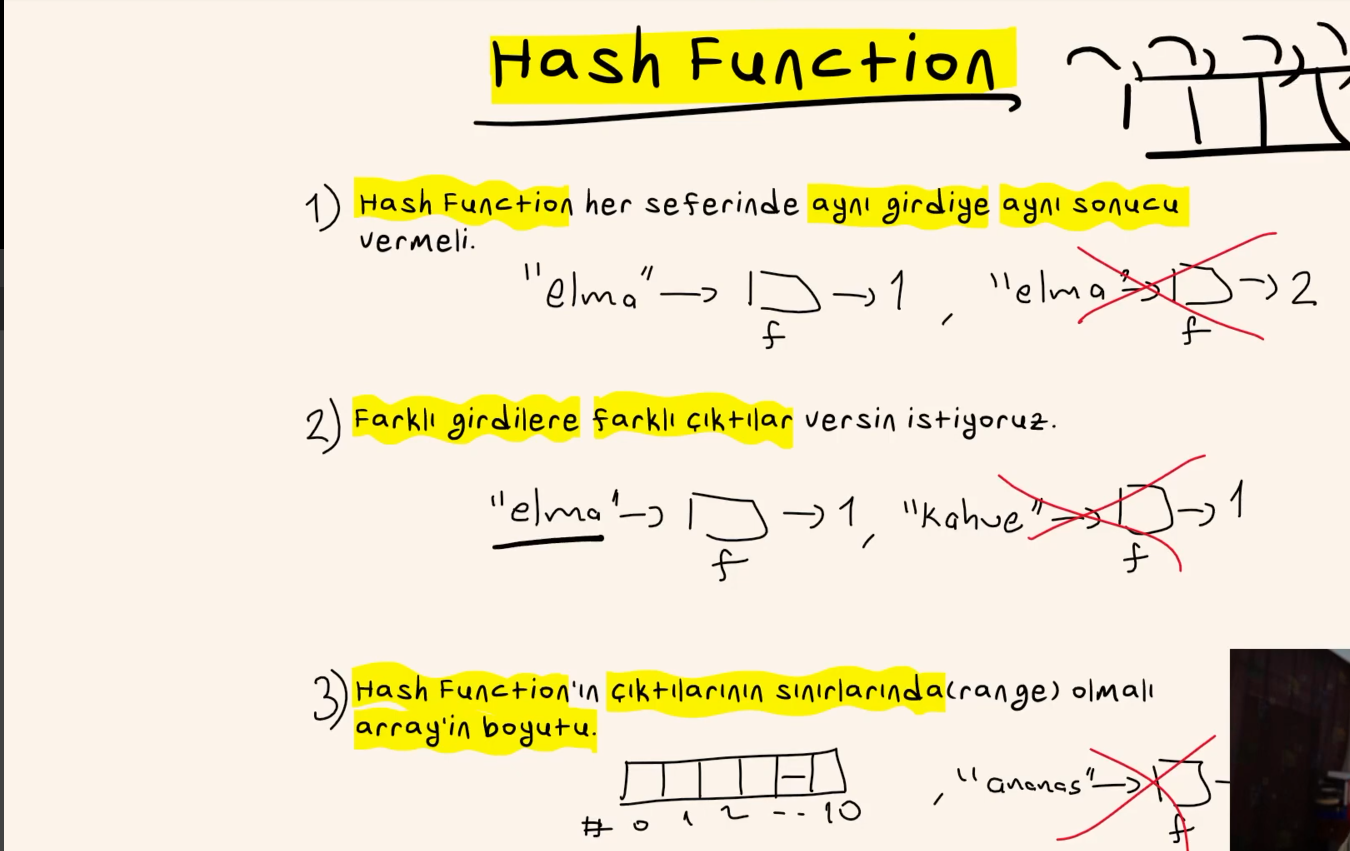 Hash Function
1) Hash Function her seferinde aynı girdiye aynı sonucu
vermeli.
"elma" → f → 1 , "elma" → f → 2
2) Farklı girdilere farklı çıktılar versin istiyoruz.
"elma" → f → 1 , "kahve" → f → 1
3) Hash Function'ın çıktılarının sınırlarında (range) olmalı
array'in boyutu.
, "ananas" → f
# 0 1 2 -- 10